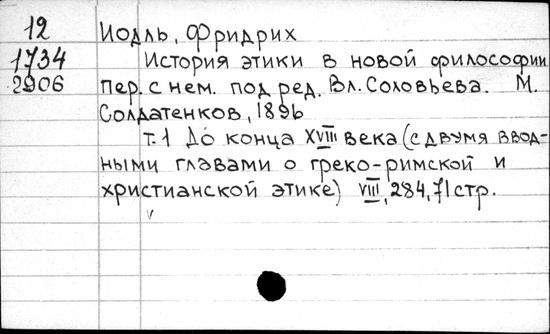 12 Иодль, Фридрих
1734 История этики в новой философии
2906 пер. с нем. под ред. Вл. Соловьева. М.
Солдатенков, 1896
т. 1 До конца XVIII века (с двумя ввод-
ными главами о греко-римской и
христианской этике) VIII, 284, 71 стр.